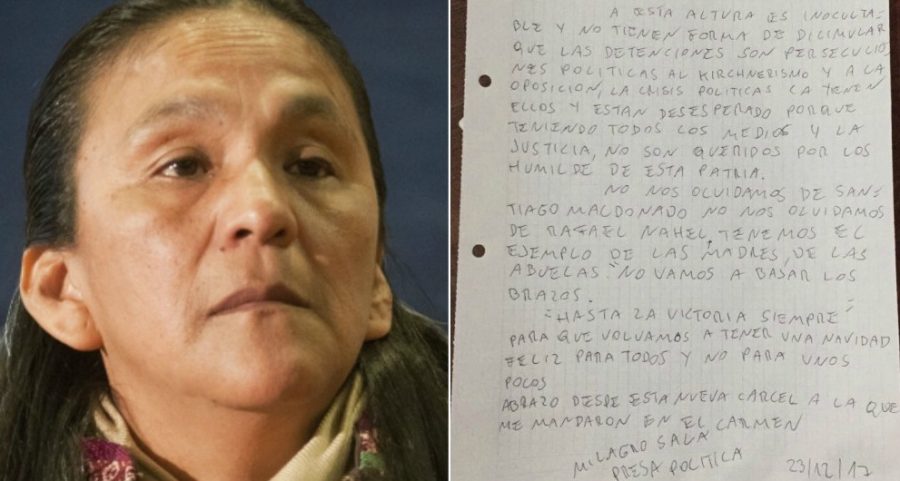 A ESTA ALTURA ES INOCULTA-
BLE Y NO TIENEN FORMA DE DICIMULAR
QUE LAS DETENCIONES SON PERSECUCIO
NES POLITICAS AL KIRCHNERISMO Y A LA
OPOSICION, LA CRISIS POLITICAS LA TIENEN
ELLOS Y ESTAN DESESPERADO PORQUE
TENIENDO TODOS LOS MEDIOS Y LA
JUSTICIA, NO SON QUERIDOS POR LOS
HUMILDE DE ESTA PATRIA.
NO NOS OLVIDAMOS DE SAN-
TIAGO MALDONADO NO NOS OLVIDAMOS
DE RAFAEL NAHEL, TENEMOS EL
EJEMPLO DE LAS "MADRES, DE LAS
ABUELAS" NO VAMOS A BAJAR LOS
BRAZOS.
"HASTA LA VICTORIA SIEMPRE"
PARA QUE VOLVAMOS A TENER UNA NAVIDAD
FELIZ PARA TODOS Y NO PARA UNOS
POCOS
ABRAZO DESDE ESTA NUEVA CARCEL A LA QUE
ME MANDARON EN EL CARMEN
MILAGRO SALA
PRESA POLITICA
23/12/17